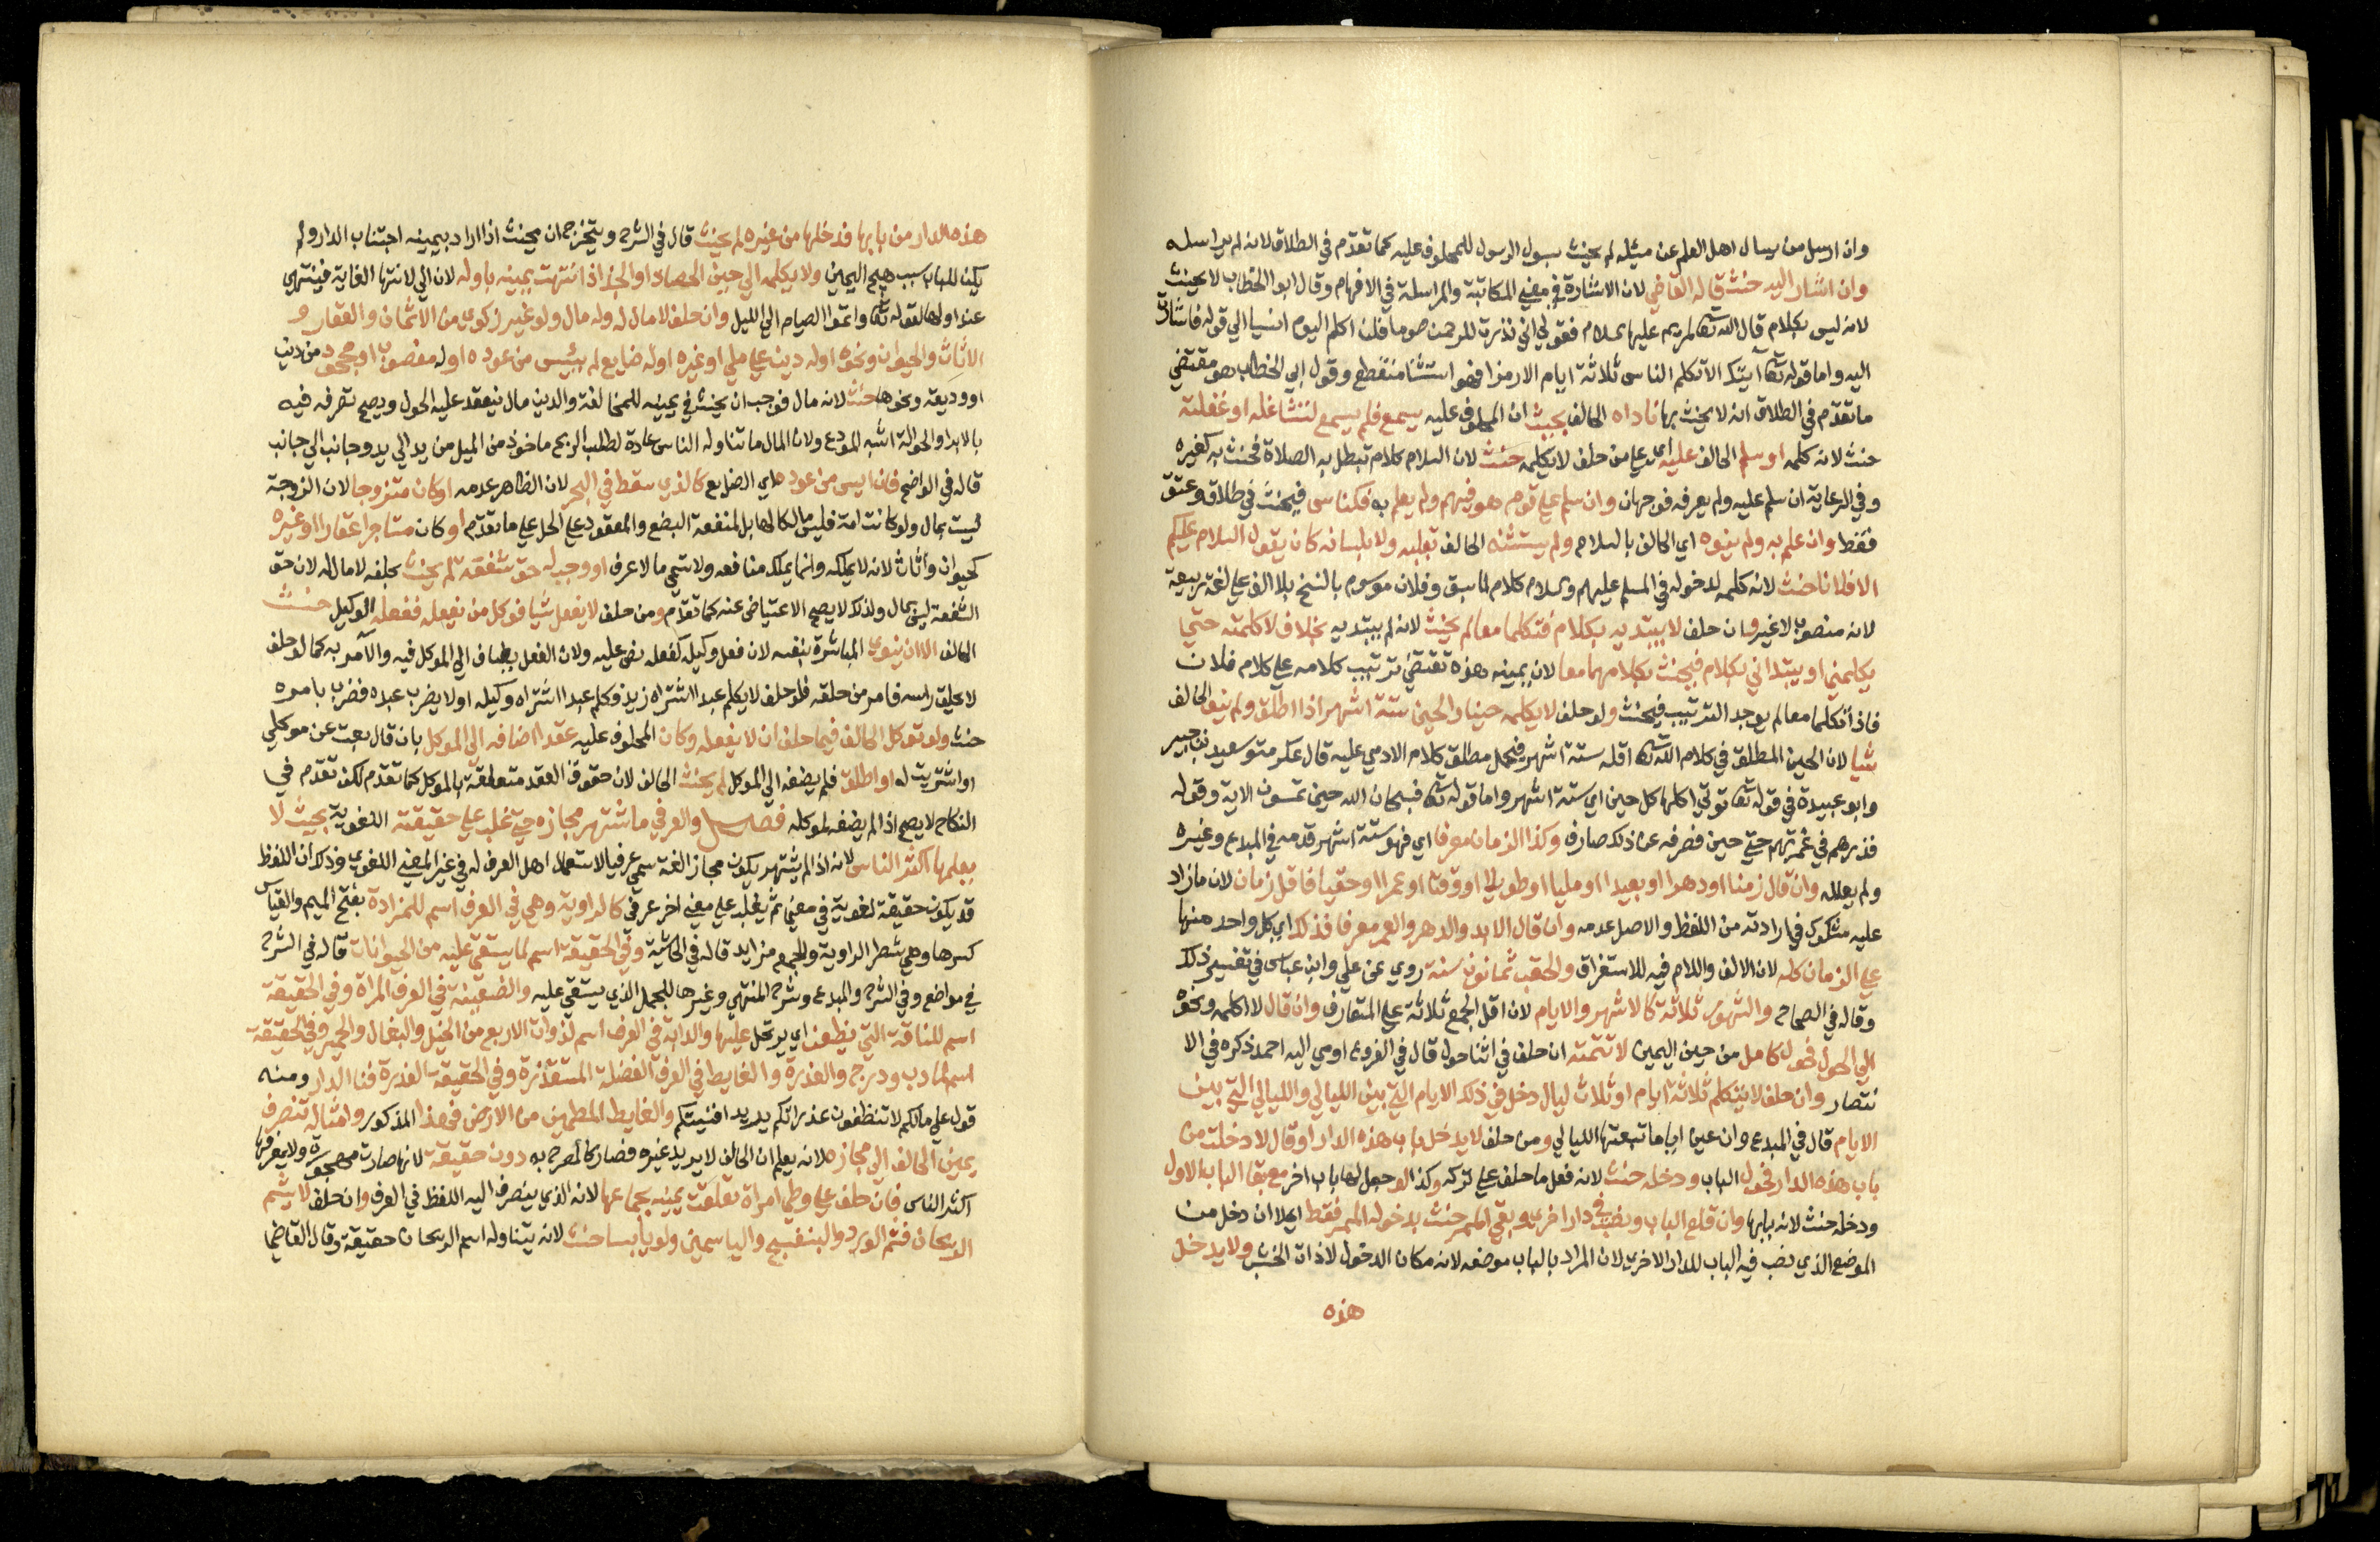 وان ارسل من يسال اهل العلم عن مسئلة لم يحنث بسول الرسول للمحلوف عليه كما تقدم في الطلاق لانه لم يراسله
وان اشار اليه حنث قاله القاضي لان الاشارة في معني المكاتبة والمراسلة في الافهام وقال ابوا الخطاب لا يحنث
لانه ليس بكلام قال الله تعالى لمريم عليها السلام فقولي اني نذرت للرحمن صوما فلن اكلم اليوم انسيا الي قوله فاشارت
اليه واما قوله تعالى آيتك الا تكلم الناس ثلاثة ايام الا رمزا فهو استثنا منقطع وقول ابي الخطاب هو مقتضي
ما تقدم في الطلاق انه لا يحنث بها ناداه الحالف بحيث ان المحلوف عليه يسمع فلم يسمع لتشاغله او غفلته
حنث لانه كلمه او سلم الحالف عليه اي علي من حلف لا يكلمه حنث لان السلام كلام تبطل به الصلاة فحنث به كغيره
وفي الرعاية ان سلم عليه ولم يعرفه فوجهان وان سلم علي قوم هو فيهم ولم يعلم به فكناسي فيحنث في طلاق وعتق
فقط وان علم به ولم ينوه اي الحالف بالسلام ولم يستثنه الحالف بقلبه ولا بلسانه كان يقول السلام عليكم
الا فلانا حنث لانه كلمه لدخوله في المسلم عليهم والسلام كلام لما سبق وفلان مرسوم بالنسخ بلا الف علي لغة ربيعة
لانه منصوب لا غير وان حلف لا يبتديه بكلام فتكلما معا لم يحنث لانه لم يبتديه بخلاف لا كلمته حتي
يكلمني او يبتداني بكلام فيحنث بكلامهما معا لان يمينه هذه تقتضي ترتيب كلامه علي كلام فلان
فاذا تكلما معا لم يوجد الترتيب فيحنث ولو حلف لا يكلمه حينا والحين ستة اشهر اذا اطلق ولم ينو الحالف
شيا لان الحين المطلق في كلام الله تعالى اقله ستة اشهر فيحمل مطلق كلام الادمي عليه قال عكرمة وسعيد بن جبير
وابو عبيدة في قوله تعالى تؤتي اكلها كل حين اي ستة اشهر واما قوله تعالى فسبحان الله حين تمسون الاية وقوله
فذرهم في غمرتهم حتي حين فصرفه عن ذلك صارف وكذا الزمان معرفا اي فهو ستة اشهر قدمه في المبدع وغيره
ولم يعلله وان قال زمنا او دهرا او بعيدا او مليا او طويلا او وقتا او عمرا او حقبا فاقل زمان لان ما زاد
عليه مشكوك في ارادته من اللفظ والاصل عدمه وان قال الابد والدهر والعمر معرفا فذلك اي كل واحد منها
علي الزمان كله لان الالف واللام فيه للاستغراق والحقب ثمانون سنة روي عن علي وابن عباس في تفسير ذلك
وقاله في الصحاح والشهور ثلاثة كالاشهر والايام لان اقل الجمع ثلاثة علي المتعارف وان قال لا اكلمه ونحوه
الي الحول فحول كامل من حين اليمين لا تتمته ان حلف في اثنا حول قال في الفروع اومي اليه احمد ذكره في الا
نتصار وان حلف لا يتكلم ثلاثة ايام او ثلاث ليال دخل في ذلك الايام التي بين الليالي والليالي التي بين
الايام قال في المبدع وان عين اياما تبعتها الليالي ومن حلف لا يدخل باب هذه الدار او قال لا دخلت من
باب هذه الدار فحول الباب ودخله حنث لانه فعل ما حلف علي تركه وكذا لو جعل لها باب اخر مع بقا الباب الاول
ودخله حنث لانه بابها وان قلع الباب ونصب في دار اخري وبقي الممر حنث بدخوله الممر فقط اي لا ان دخل من
الموضع الذي نصب فيه الباب للدار الاخري لان المراد بالباب موضعه لانه مكان الدخول لا ذات الخشب ولا يدخل
هذه
هذه الدار من بابها فدخلها من غيره لم يحنث قال في الشرح ويتخرج ان يحنث اذا اراد بيمينه اجتناب الدار ولم
يكن للباب سبب هيج اليمين ولا يكلمه الي حين الحصاد او الجذاذ انتهت يمينه باوله لان الي لانتها الغاية فينتهي
عند اولها لقوله تعالى واتموا الصيام الي الليل وان حلف لا مال له وله مال ولو غير زكوي من الاثمان والعقار و
الاثاث والحيوان ونحوه او له دين علي ملي او غيره او له ضايع لم ييئس من عوده او له مغصوب او مجحود من دين
او وديعة ونحوها حنث لانه مال فوجب ان يحنث في يمينه للمخالفة والدين مال ينعقد عليه الحول ويصح تصرفه فيه
بالابرا والحوالة اشبه المودع ولان المال ما تناوله الناس عادة لطلب الربح ماخوذ من الميل من يد الي يد وجانب الي جانب
قاله في الواضح فان ايس من عوده اي الضايع كالذي سقط في البحر لان الظاهر عدمه او كان متزوجا لان الزوجة
ليست بمال ولو كانت امة فليس مالكا لها بل لمنفعة البضع والمعقود علي الحل علي ما تقدم او كان مستاجرا عقارا او غيره
كحيوان واثاث لانه لا يملكه وانما يملك منافعه ولا تسمي مالا عرفا او وجب له حق شفعة لم يحنث بحلفه لا مال له لان حق
الشفعة ليس بمال ولذلك لا يصح الاعتياض عنه كما تقدم ومن حلف لا يفعل شيا فوكل من يفعله ففعله الوكيل حنث
الحالف الا ان ينوي المباشرة بنفسه لان فعل وكيله كفعله نص عليه ولان الفعل يضاف الي الموكل فيه والآمر به كما لو حلف
لا يحلق راسه فامر من حلقه فلو حلف لا يكلم عبدا اشتراه زيد فكلم عبدا اشتراه وكيله او لا يضرب عبده فضرب بامره
حنث ولو توكل الحالف فيما حلف ان لا يفعله وكان المحلوف عليه عقدا اضافه الي الموكل بان قال بعت عن موكلي
او اشتريت له او اطلق فلم يضفه الي الموكل لم يحنث الحالف لان حقوق العقد متعلقة بالموكل كما تقدم لكن تقدم في
النكاح لا يصح اذا لم يضفه لموكله فصل والعرفي ما اشتهر مجازه حتي غلب علي حقيقته اللغوية بحيث لا
يعلمها اكثر الناس لانه اذا لم يشتهر يكون مجازا لغة سمي عرفيا لاستعمال اهل العرف له في غير المعني اللغوي وذلك ان اللفظ
قد يكون حقيقة لغوية في معني ثم يغلب علي معني اخر عرفي كالراوية وهي في العرف اسم للمزادة بفتح الميم والقياس
كسرها وهي شطر الراوية والجمع مزايد قاله في الحاشية وفي الحقيقة اسم لما يستقي عليه من الحيوانات قاله في الشرح
في مواضع وفي الشرح والمبدع وشرح المنتهي وغيرها للجمل الذي يستقي عليه والضعينة في العرف المراة وفي الحقيقة
اسم للناقة التي يظعن اي يرتحل عليها والدابة في العرف اسم لذوات الاربع من الخيل والبغال والحمير وفي الحقيقة
اسم لما دب ودرج والعذرة والغايط في العرف الفضلة المستقذرة وفي الحقيقة العذرة فنا الدار ومنه
قول علي ما لكم لا تنظفون عذراتكم يريد افنيتكم والغايط المطمين من الارض فهذا المذكور وامثاله تنصرف
يمين الحالف الي مجازه لانه يعلم ان الحالف لا يريد غيره فصار كالمصرح به دون حقيقته لانها صارت مهجورة ولا يعرفها
اكثر الناس فان حلف علي وطي امراة تعلقت يمينه بجماعها لانه الذي ينصرف اليه اللفظ في العرف وان حلف لا يشم
الريحان فشم الورد والبنفسج والياسمين ولو يابسا حنث لانه يتناوله اسم الريحان حقيقة وقال القاضي